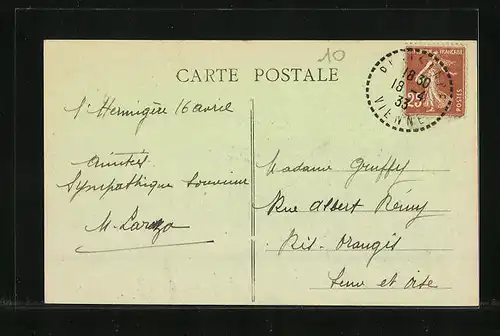 10
CARTE POSTALE
FRANÇAISE
POSTES
25
18 30
18 -4
33
VIENNE
l'Hermigère 16 avril
Amitiés
Sympathique Souvenir
Madame Gruffy
Rue Albert Rémy
Ris-Orangis
Seine et Oise